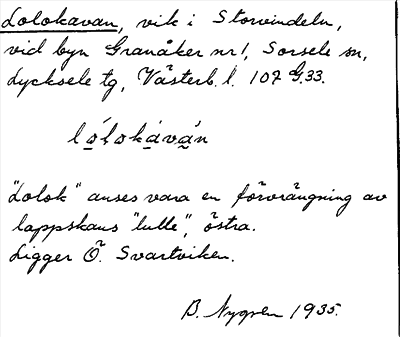 Lolokavan, vik i Storvindeln,
vid byn Granåker nr 1, Sorsele sn,
Lycksele tg, Västerb. l. 107 G.33.
ló̲lokà̲vá̲n
"Lolok" anses vara en förvrängning av
lappskans "lulle", östra.
Ligger Ö. Svartviken.
B. Nygren 1935.